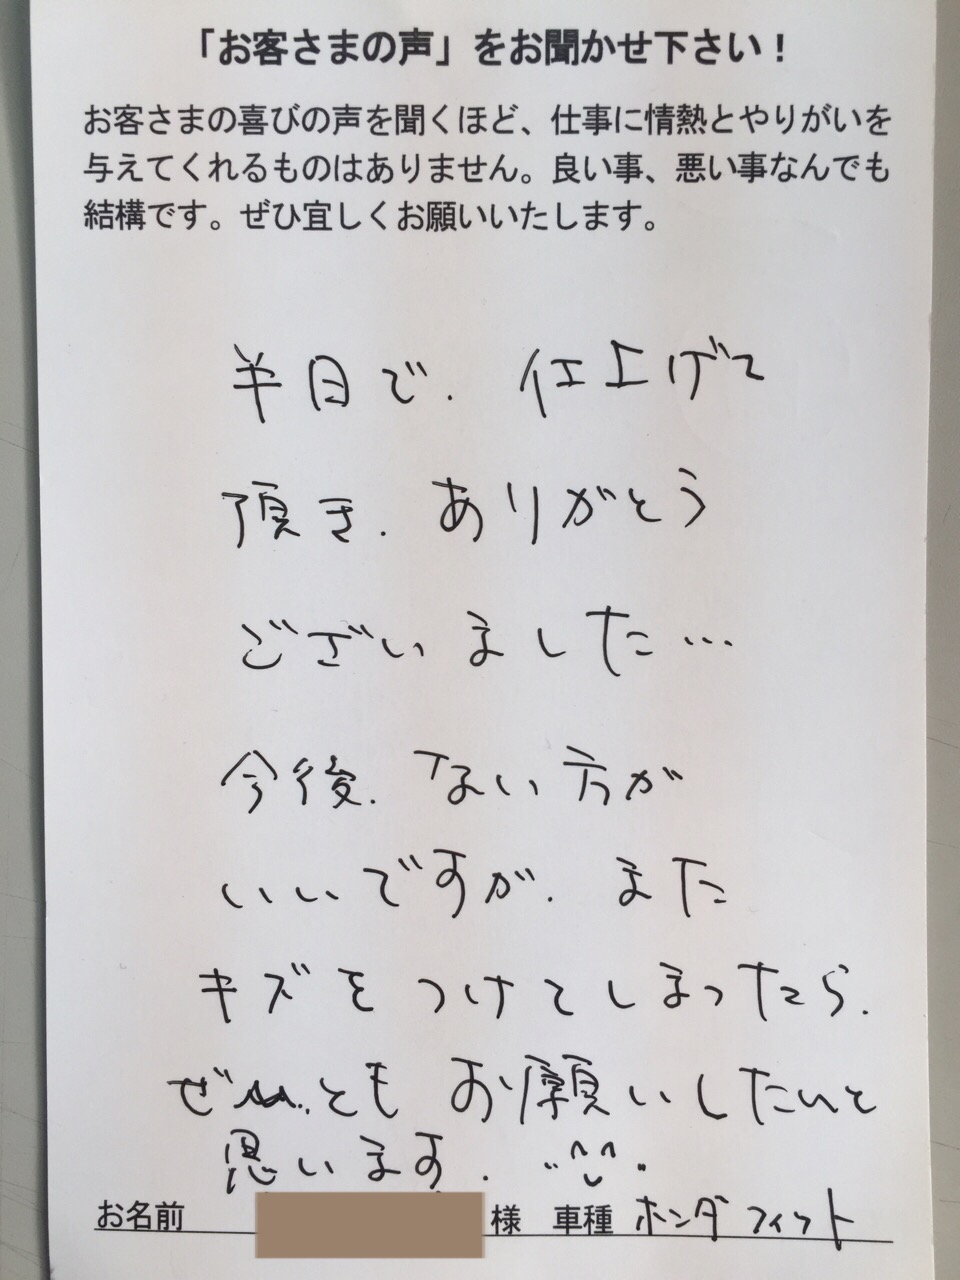 「お客さまの声」をお聞かせ下さい！
お客さまの喜びの声を聞くほど、仕事に情熱とやりがいを
与えてくれるものはありません。良い事、悪い事なんでも
結構です。ぜひ宜しくお願いいたします。
半日で、仕上げて
頂き、ありがとう
ございました…
今後、ない方が
いいですが、また
キズをつけてしまったら、
ぜ とも お願いしたいと
思います。
お名前 様 車種 ホンダ フィット